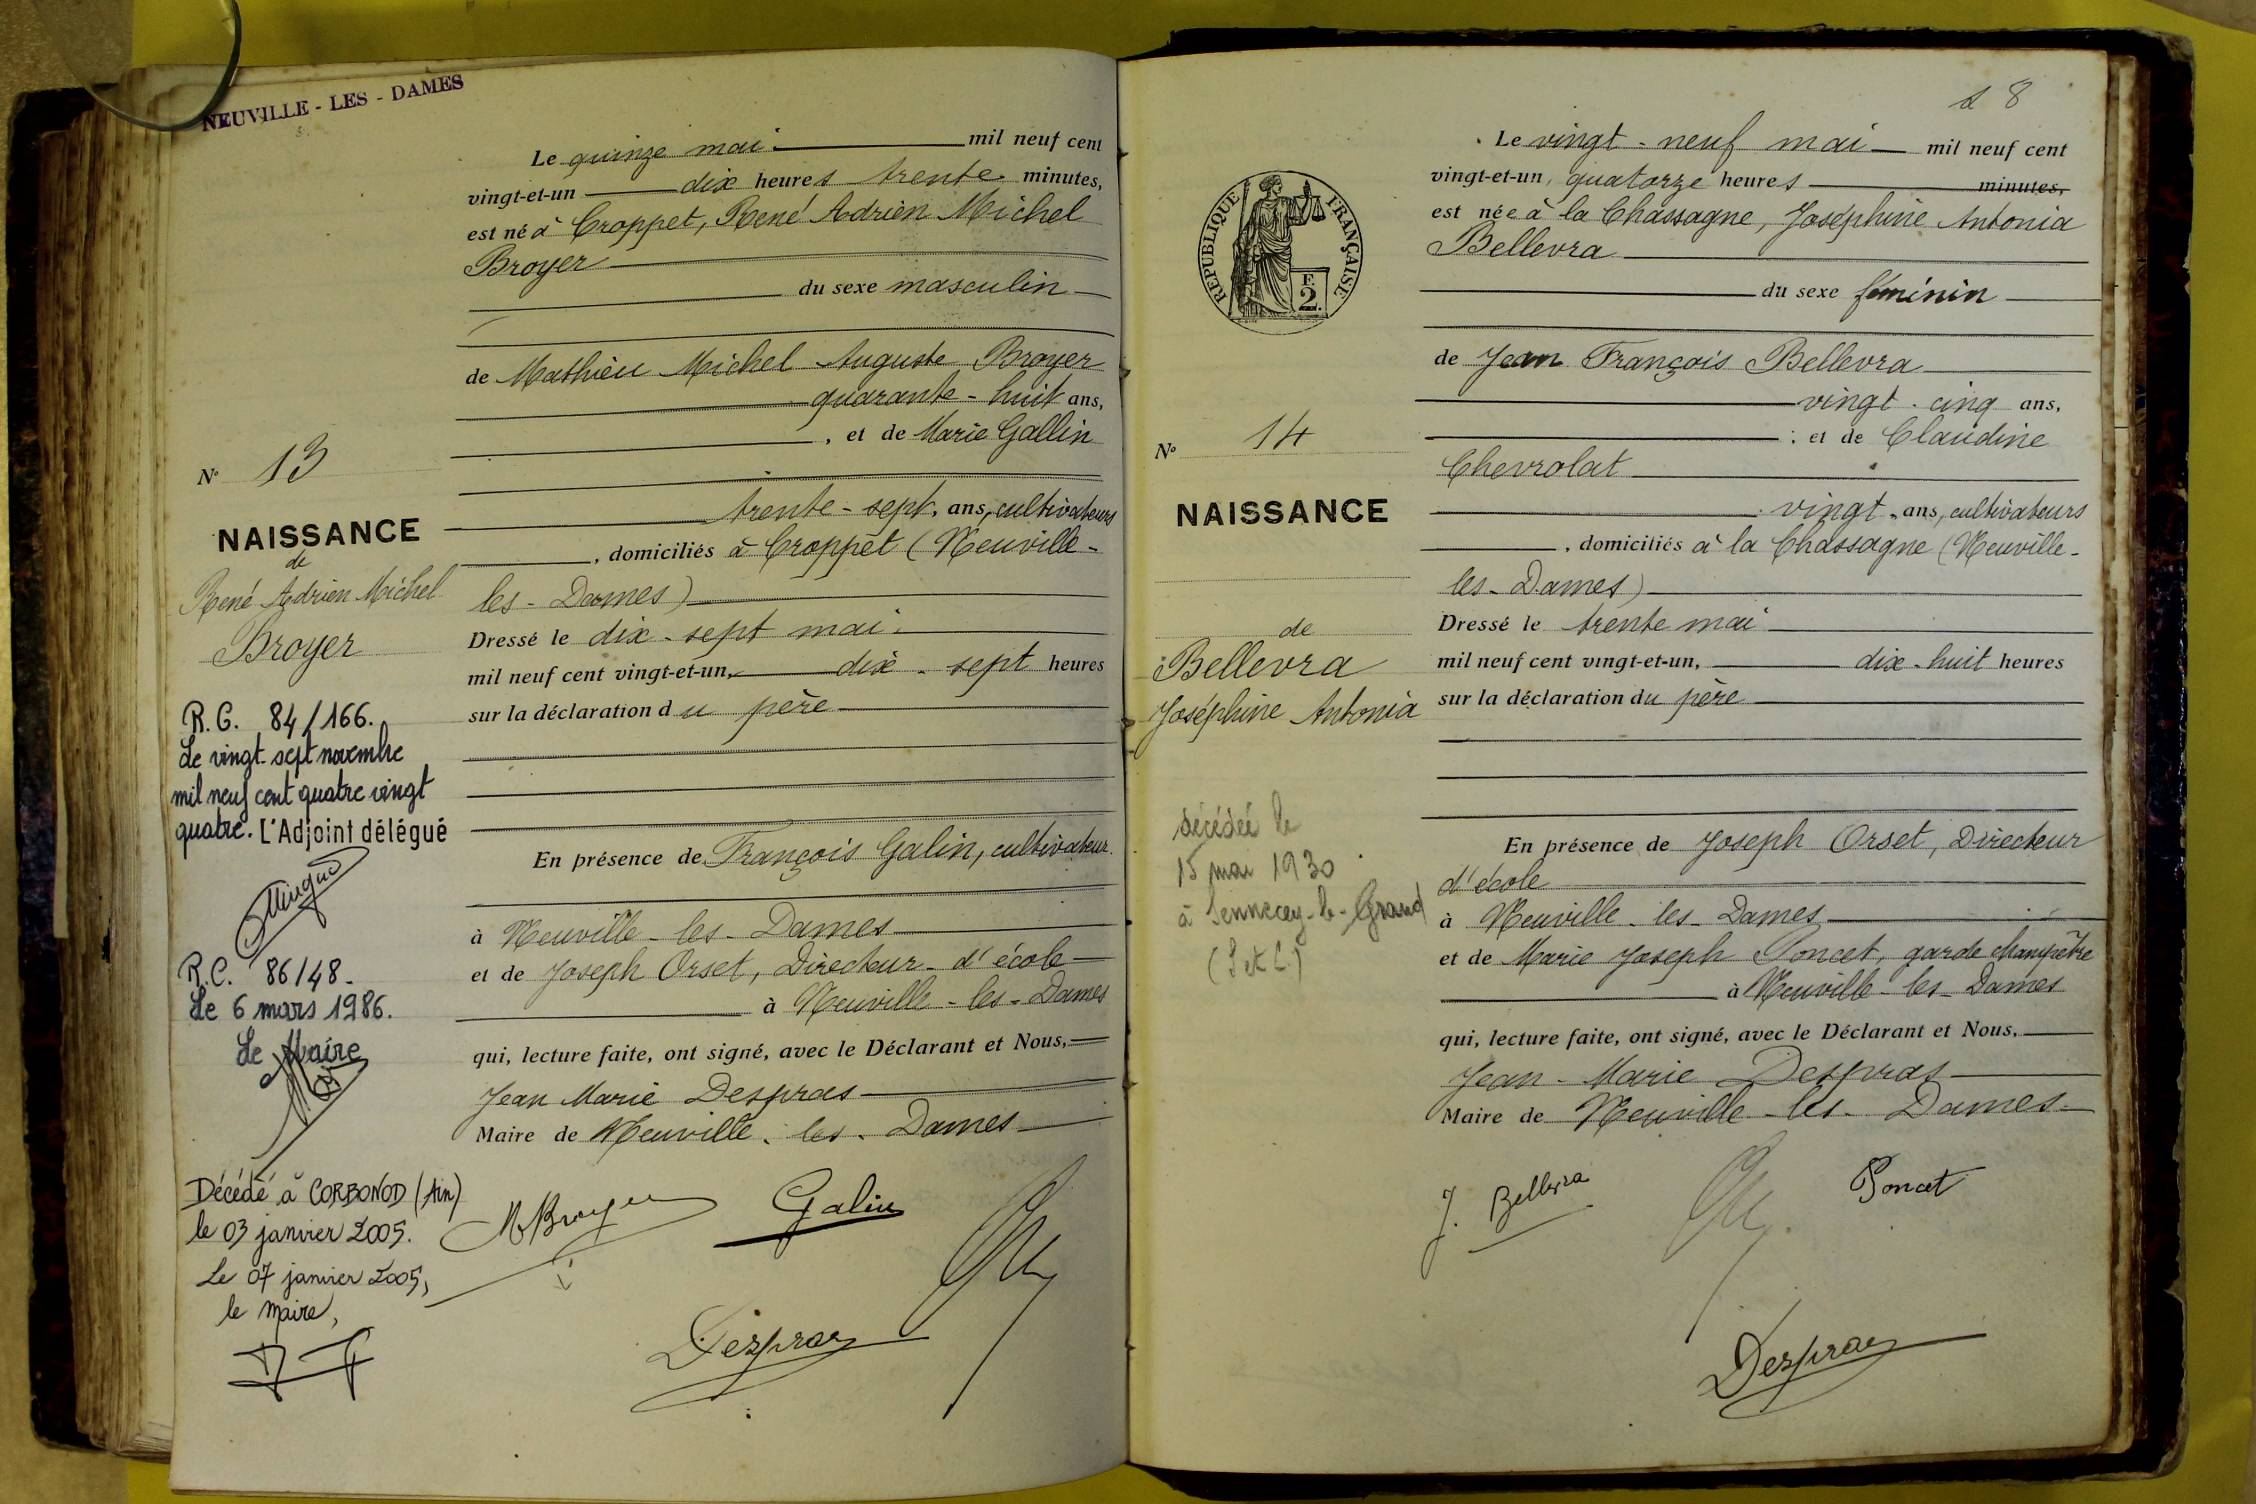 NEUVILLE - LES - DAMES
Le quinze mai mil neuf cent
vingt-et-un dix heures trente minutes,
est né à Croppet, René Adrien Michel
Broyer
du sexe masculin
de Mathieu Michel Auguste Broyer
quarante-huit ans,
, et de Marie Gallin
trente-sept, ans, cultivateurs
, domiciliés à Croppet (Neuville-
les-Dames)
Dressé le dix-sept mai
mil neuf cent vingt-et-un, dix-sept heures
sur la déclaration du père
En présence de François Galin, cultivateur
à Neuville-les-Dames
et de Joseph Orset, Directeur d'école
à Neuville-les-Dames
qui, lecture faite, ont signé, avec le Déclarant et Nous,
Jean Marie Despras
Maire de Neuville-les-Dames
M Broyer
Galin
Despras
N° 13
NAISSANCE
de
René Adrien Michel
Broyer
R.C. 84/166.
Le vingt-sept novembre
mil neuf cent quatre vingt
quatre. L'Adjoint délégué
R.C. 86/48.
Le 6 mars 1986.
Le Maire
Décédé à CORBONOD (Ain)
le 03 janvier 2005.
Le 07 janvier 2005,
le maire,
8
Le vingt-neuf mai mil neuf cent
vingt-et-un, quatorze heures minutes,
est née à la Chassagne, Joséphine Antonia
Bellevra
du sexe féminin
de Jean François Bellevra
vingt-cinq ans,
, et de Claudine
Chevrolat
vingt, ans, cultivateurs
, domiciliés à la Chassagne (Neuville-
les-Dames)
Dressé le trente mai
mil neuf cent vingt-et-un, dix-huit heures
sur la déclaration du père
En présence de Joseph Orset, Directeur
d'école
à Neuville-les-Dames
et de Marie Joseph Poncet, garde champêtre
à Neuville-les-Dames
qui, lecture faite, ont signé, avec le Déclarant et Nous,
Jean-Marie Despras
Maire de Neuville-les-Dames
J. Bellevra
Poncet
Despras
REPUBLIQUE FRANÇAISE
F.
2.
N° 14
NAISSANCE
de
Bellevra
Joséphine Antonia
décédée le
15 mai 1930
à Sennecey-le-Grand
(S et L)